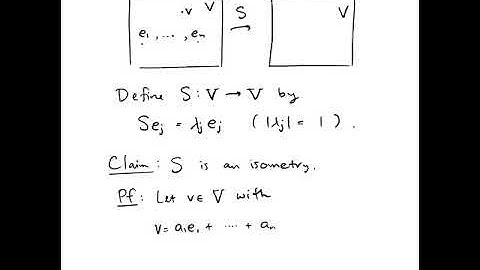 ·v V S V
e₁, ..., eₙ →
Define S: V → V by
Seⱼ = λⱼeⱼ (|λⱼ| = 1).
Claim: S is an isometry.
Pf: Let v ∈ V with
v = a₁e₁ + ···· + aₙ